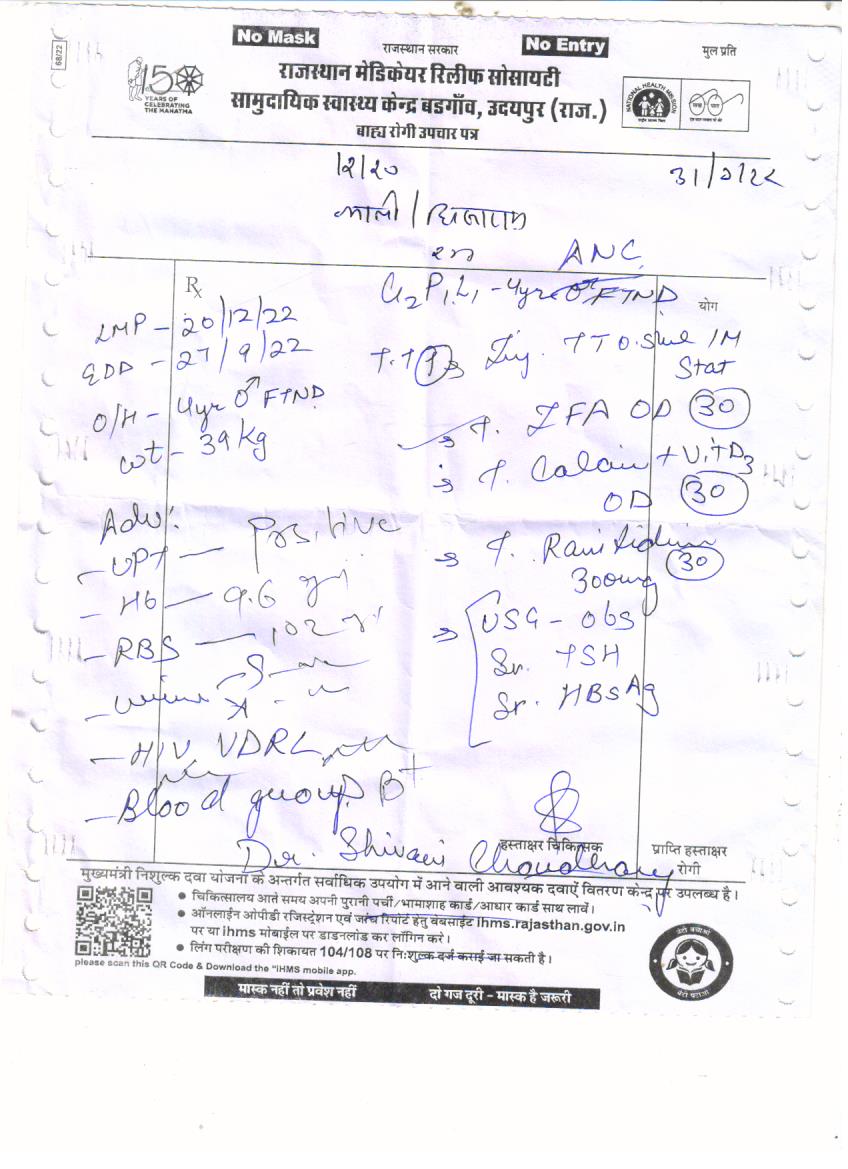 No Mask
राजस्थान सरकार
No Entry
मुल प्रति
68/22
150
YEARS OF
CELEBRATING
THE MAHATMA
राजस्थान मेडिकेयर रिलीफ सोसायटी
सामुदायिक स्वास्थ्य केन्द्र बडगाँव, उदयपुर (राज.)
बाह्य रोगी उपचार पत्र
NATIONAL HEALTH MISSION
ANC
Rx
G2P1L1 - 4yr ♂ FTND
योग
LMP - 20/12/22
EDD - 27/9/22
O/H - 4yr ♂ FTND
wt - 39 Kg
T.T ① Inj. TT 0.5ml IM
Stat
T. IFA OD 30
+ Vit D3
OD 30
Adv:
- UPT — Positive
T. Ranitidine 30
300mg
- Hb — 9.6
- RBS — 102
USG - Obs
Sr. TSH
Sr. HBsAg
- HIV, VDRL
- Blood group B+
हस्ताक्षर चिकित्सक
प्राप्ति हस्ताक्षर
रोगी
Dr. Shivani Choudhary
मुख्यमंत्री निशुल्क दवा योजना के अन्तर्गत सर्वाधिक उपयोग में आने वाली आवश्यक दवाऐं वितरण केन्द्र पर उपलब्ध है।
• चिकित्सालय आते समय अपनी पुरानी पर्ची/भामाशाह कार्ड/आधार कार्ड साथ लावें।
• ऑनलाईन ओपीडी रजिस्ट्रेशन एवं जांच रिपोर्ट हेतु वेबसाईट ihms.rajasthan.gov.in
पर या ihms मोबाईल पर डाडनलोड कर लॉगिन करे।
• लिंग परीक्षण की शिकायत 104/108 पर निःशुल्क दर्ज कराई जा सकती है।
please scan this QR Code & Download the "iHMS mobile app.
बेटी बचाओ
बेटी पढ़ाओ
मास्क नहीं तो प्रवेश नहीं
दो गज दूरी - मास्क है जरूरी